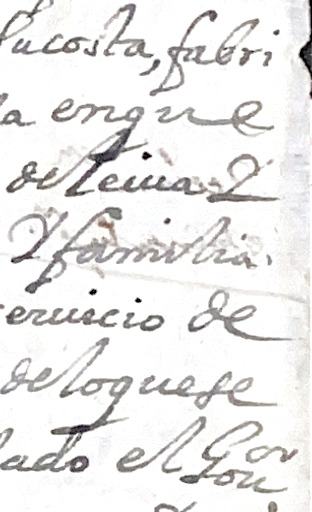 sucosta, fabri
la enque
de Leiua Y
Y familia.
seruicio de
deloquese
lado el Gov